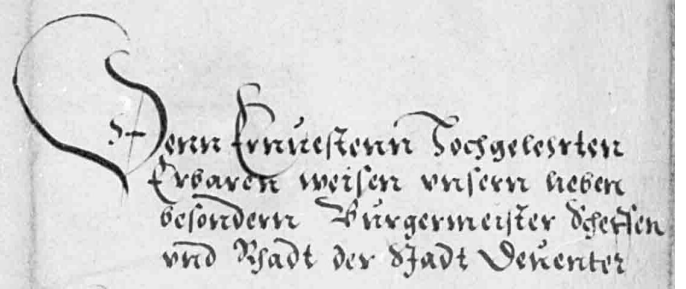 Denn Ernuestenn Hochgelehrten
Erbaren weisen vnsern lieben
besondern Burgermeister Scheffen
vnd Rhadt der Stadt Deuenter